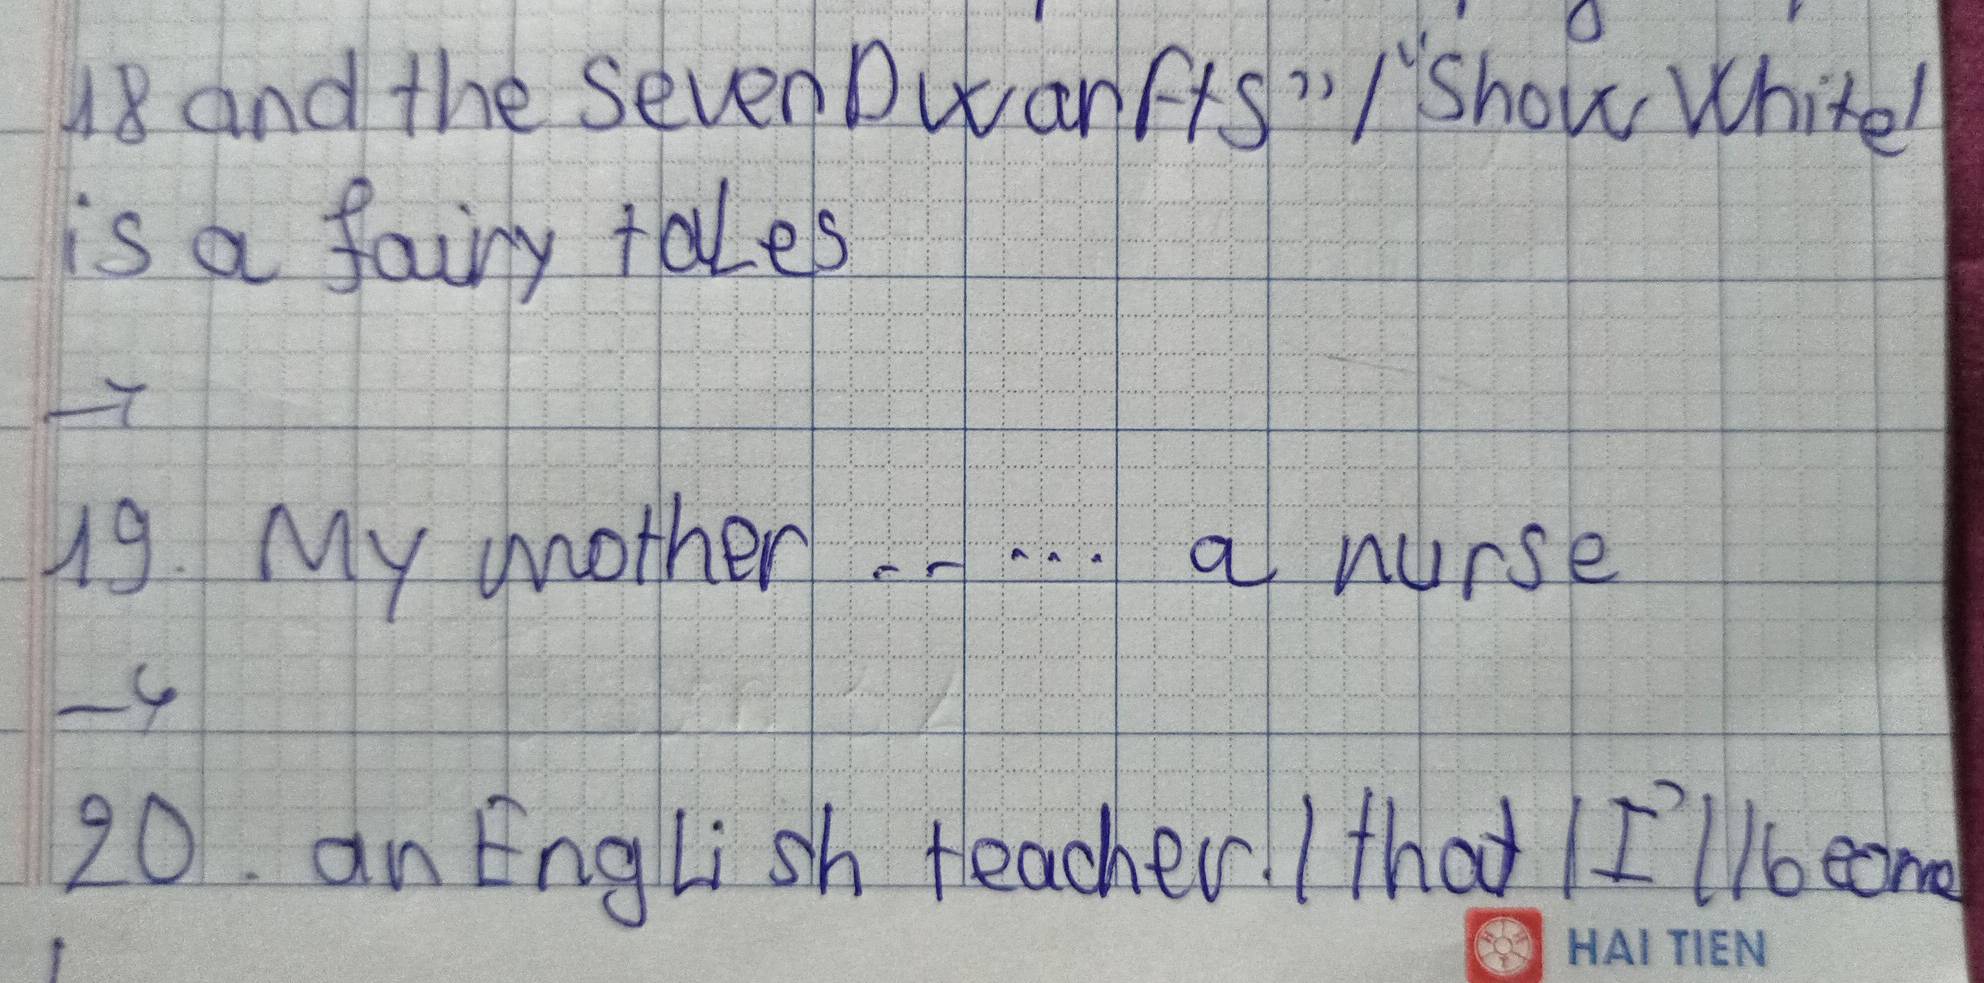 18 and the Seven Dwarfts" / "Show White /
is a fairy tales
→
19. My mother ........ a nurse
→
20. an English teacher. / that / I'll / become
HAI TIEN